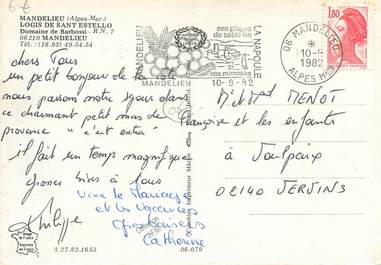 6€
MANDELIEU (Alpes-Mar.)
LOGIS DE SANT ESTELLO
Domaine de Barbossi - R.N. 7
06210 MANDELIEU
Tél. (16.93) 49.54.54
MANDELIEU
LA NAPOULE
ses plages
de sable fin
ses mimosas
MANDELIEU 10-9-82
06 MANDELIEU
10-9
1982
ALPES MMES
1,80
chers Tous
un petit bonjour de la
nous passons notre séjour dans
ce charmant petit mas de
provence "c'est extra"
il fait un temps magnifique
grosses bises à tous
Philippe
Vive le Mariage
et les Vacances
Gros baisers
Catherine
Mr et Md MENOT
Françoise et les enfants
à
02140 VERVINS
3.27.82.1653
06.079